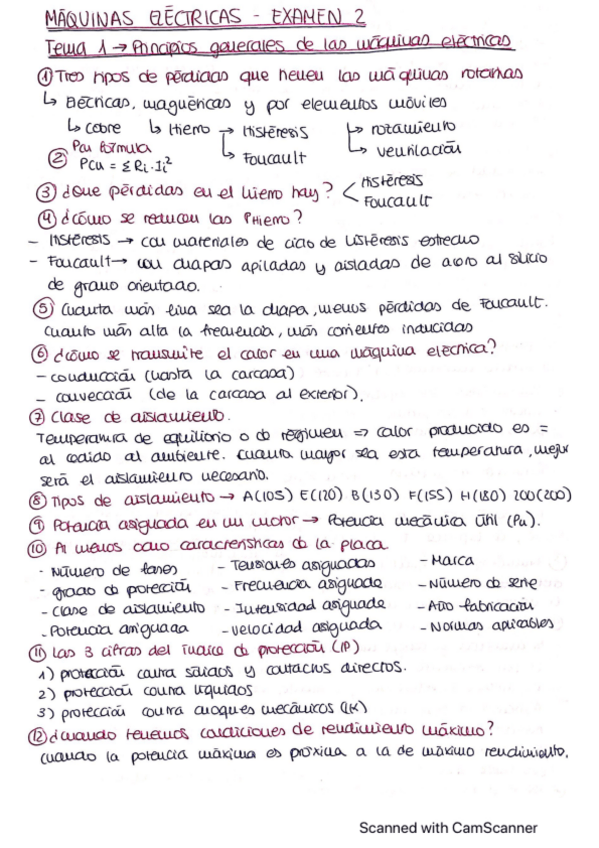 MÁQUINAS ELÉCTRICAS - EXAMEN 2
Tema 1 → Principios generales de las máquinas eléctricas
① Tres tipos de pérdidas que tienen las máquinas rotativas
↳ Eléctricas, magnéticas y por elementos móviles
↳ Cobre ↳ Hierro → Histéresis ↳ rozamiento
↳ Foucault ↳ ventilación
② Pcu fórmula
Pcu = ΣRi·Ii²
③ ¿Que pérdidas en el hierro hay? < Histéresis
Foucault
④ ¿cómo se reducen las Phierro?
- Histéresis → con materiales de ciclo de histéresis estrecho
- Foucault → con chapas apiladas y aisladas de acero al silicio
de grano orientado.
⑤ Cuanta más fina sea la chapa, menos pérdidas de Foucault.
Cuanto más alta la frecuencia, más corrientes inducidas
⑥ ¿cómo se transmite el calor en una máquina eléctrica?
- conducción (hasta la carcasa)
- convección (de la carcasa al exterior).
⑦ Clase de aislamiento.
Temperatura de equilibrio o de régimen => calor producido es =
al cedido al ambiente. Cuanta mayor sea esta temperatura, mejor
será el aislamiento necesario.
⑧ Tipos de aislamiento → A(105) E(120) B(130) F(155) H(180) 200(200)
⑨ Potencia asignada en un motor → Potencia mecánica útil (Pu).
⑩ Al menos ocho características de la placa
- Número de fases - Tensiones asignadas - Marca
- grado de protección - Frecuencia asignada - Número de serie
- Clase de aislamiento - Intensidad asignada - Año fabricación
- Potencia asignada - velocidad asignada - Normas aplicables
⑪ Las 3 cifras del índice de protección (IP)
1) protección contra sólidos y contactos directos.
2) protección contra líquidos
3) protección contra choques mecánicos (IK)
⑫ ¿Cuando tenemos condiciones de rendimiento máximo?
Cuando la potencia máxima es próxima a la de máximo rendimiento.
Scanned with CamScanner